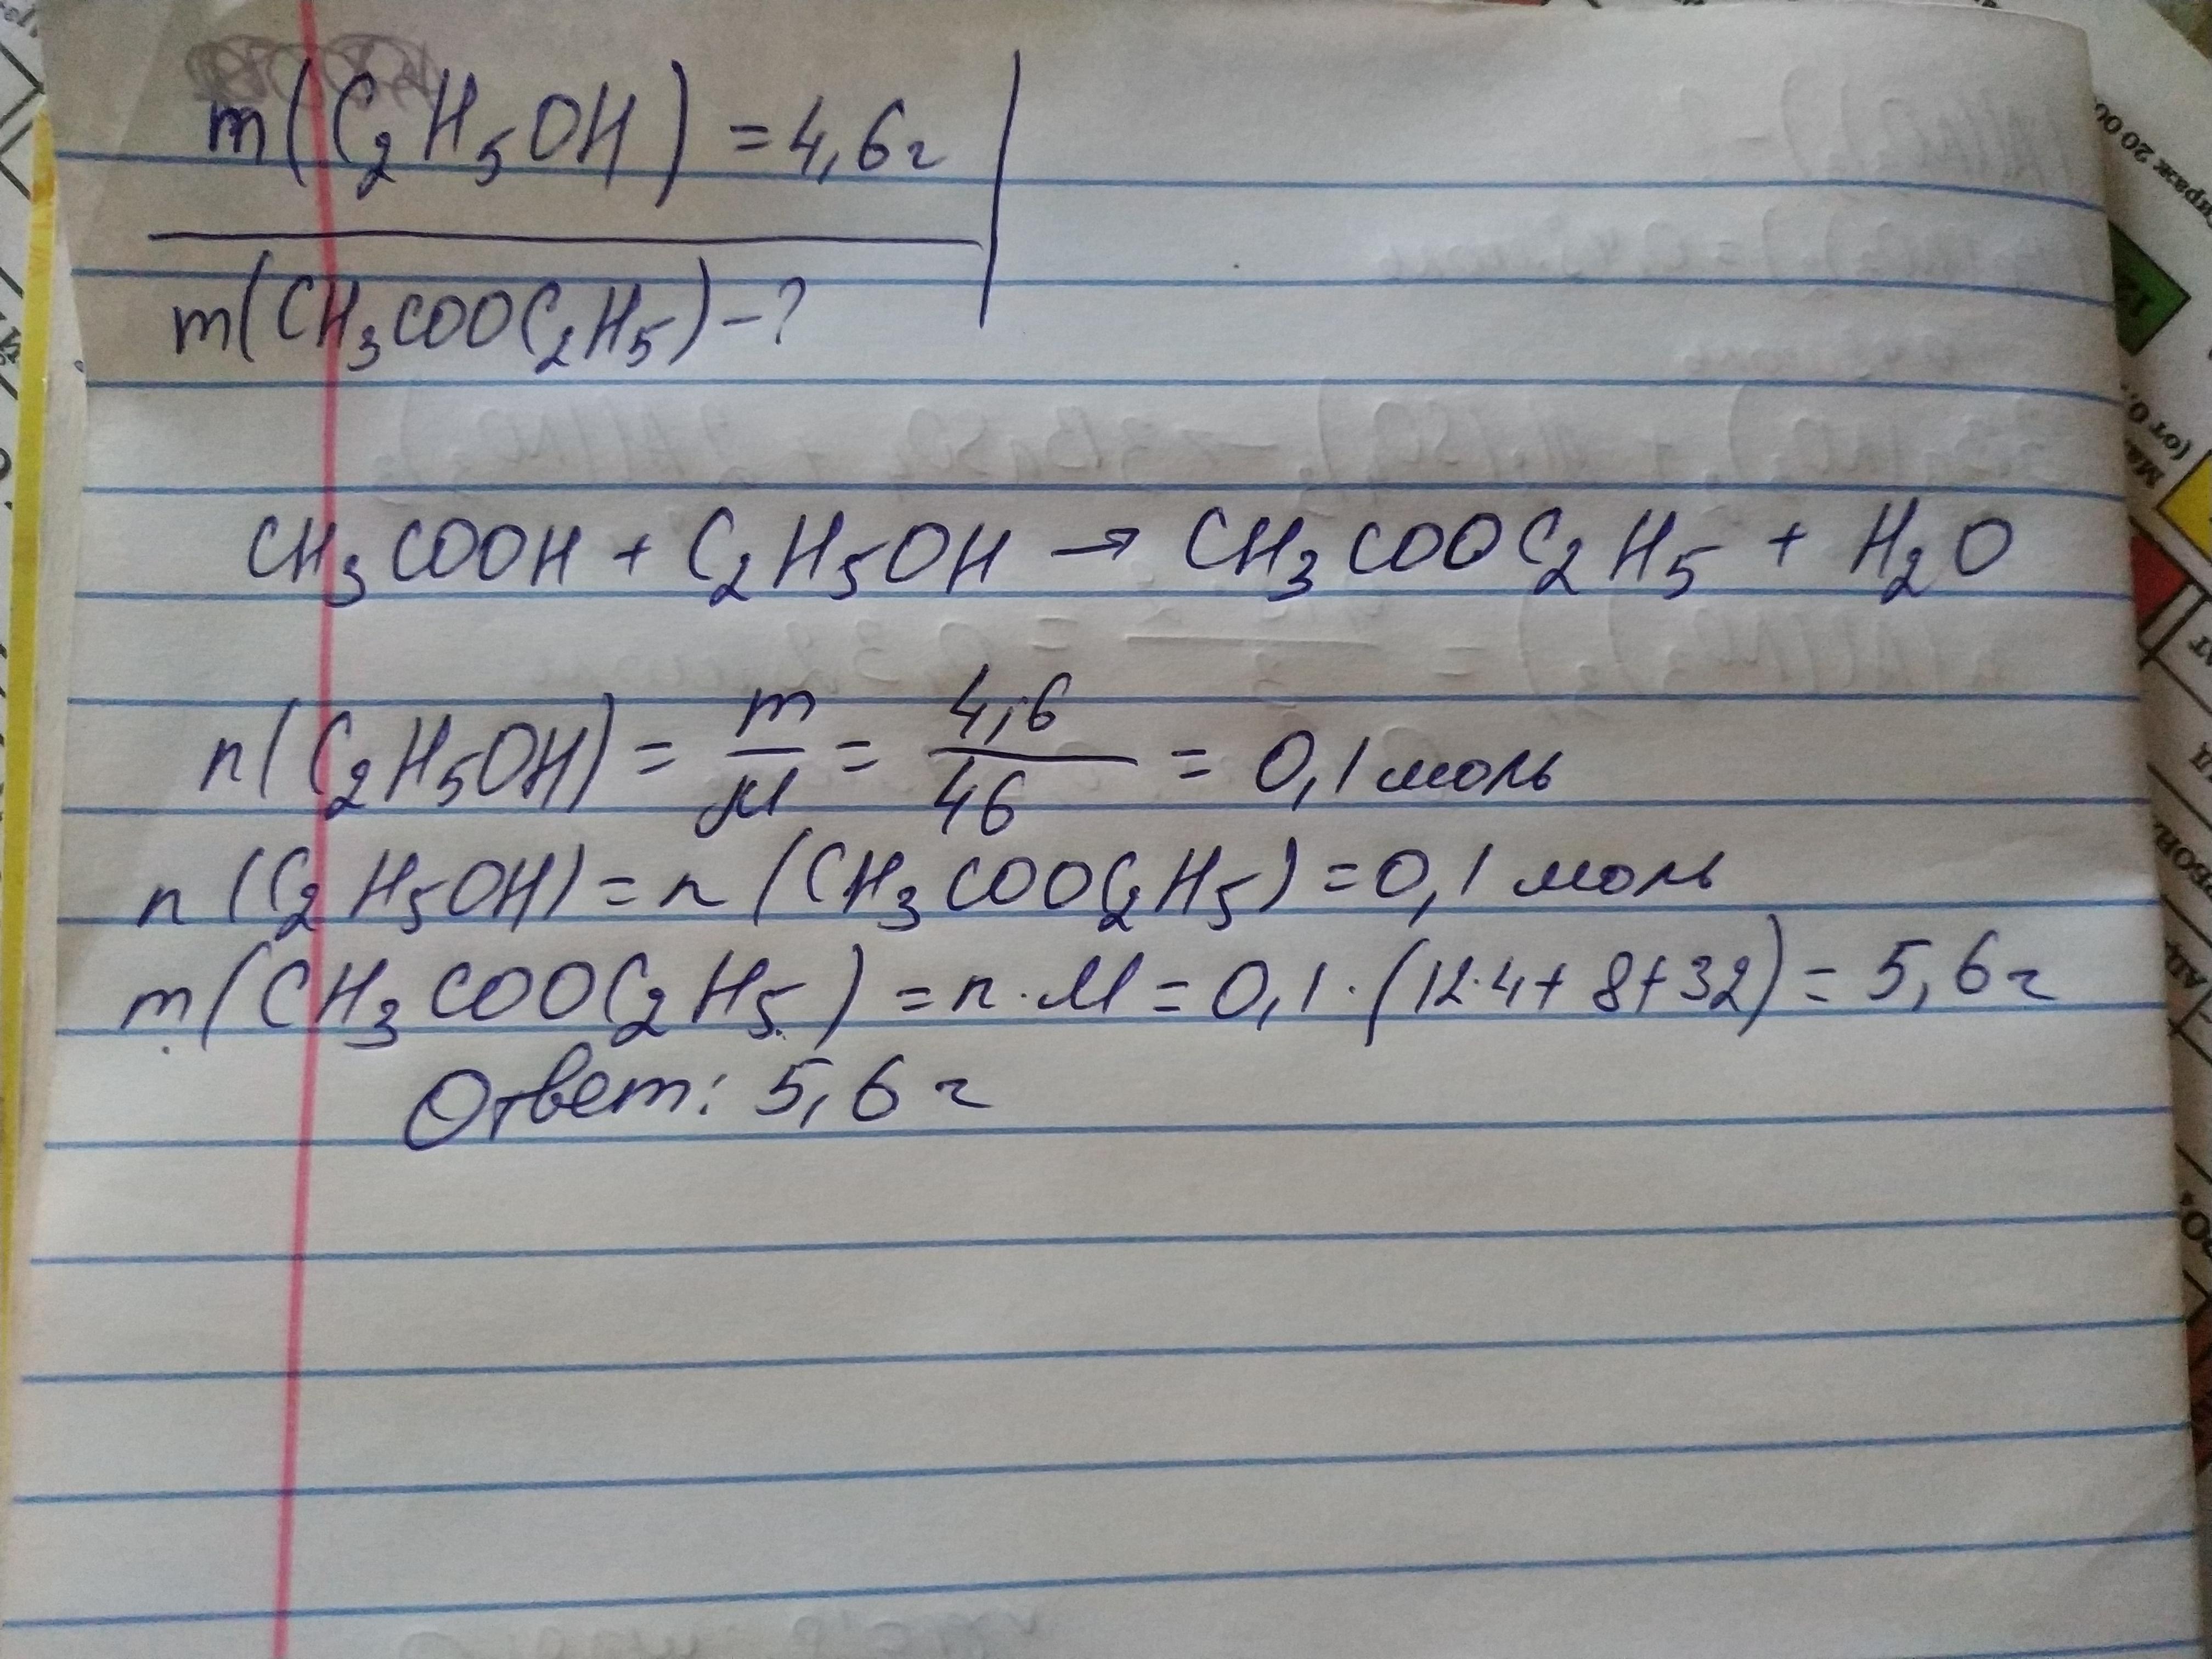 m(C₂H₅OH) = 4,6г
m(CH₃COOC₂H₅) – ?
CH₃COOH + C₂H₅OH → CH₃COOC₂H₅ + H₂O
n(C₂H₅OH) = m/M = 4,6/46 = 0,1 моль
n(C₂H₅OH) = n(CH₃COOC₂H₅) = 0,1 моль
m(CH₃COOC₂H₅) = n · M = 0,1 · (12·4 + 8 + 32) = 5,6г
Ответ: 5,6г